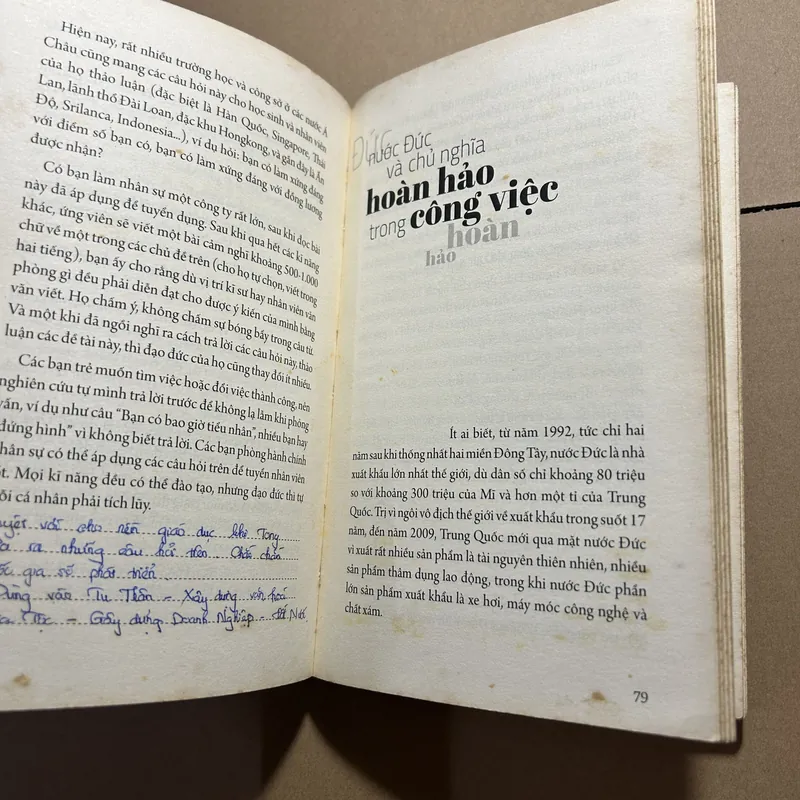 Hiện nay, rất nhiều trường học và công sở ở các nước Á
Châu cũng mang các câu hỏi này cho học sinh và nhân viên
của họ thảo luận (đặc biệt là Hàn Quốc, Singapore, Thái
Lan, lãnh thổ Đài Loan, đặc khu Hongkong, và gần đây là Ấn
Độ, Srilanca, Indonesia...), ví dụ hỏi: bạn có làm xứng đáng
với điểm số bạn có, bạn có làm xứng đáng với đồng lương
được nhận?
Có bạn làm nhân sự một công ty rất lớn, sau khi đọc bài
này đã áp dụng để tuyển dụng. Sau khi qua hết các kĩ năng
khác, ứng viên sẽ viết một bài cảm nghĩ khoảng 500-1.000
chữ về một trong các chủ đề trên (cho họ tự chọn, viết trong
hai tiếng), bạn ấy cho rằng dù vị trí kĩ sư hay nhân viên văn
phòng gì đều phải diễn đạt cho được ý kiến của mình bằng
văn viết. Họ chấm ý, không chấm sự bóng bẩy trong câu từ.
Và một khi đã ngồi nghĩ ra cách trả lời các câu hỏi này, thảo
luận các đề tài này, thì đạo đức của họ cũng thay đổi ít nhiều.
Các bạn trẻ muốn tìm việc hoặc đổi việc thành công, nên
nghiên cứu tự mình trả lời trước để không lạ lẫm khi phỏng
vấn, ví dụ như câu “Bạn có bao giờ tiểu nhân”, nhiều bạn hay
đứng hình” vì không biết trả lời. Các bạn phòng hành chính
nhân sự có thể áp dụng các câu hỏi trên để tuyển nhân viên
tốt. Mọi kĩ năng đều có thể đào tạo, nhưng đạo đức thì tự
mỗi cá nhân phải tích lũy.
với cho nền giáo dục
ra những câu hỏi trên. Chắc chắn
quốc gia sẽ phát triển.
Đừng vào Tu Thân - Xây dựng văn hoá
- Gây dựng Doanh Nghiệp - đất Nước
ĐỨC
nước Đức
và chủ nghĩa
hoàn hảo
trong công việc
hoàn
hảo
Ít ai biết, từ năm 1992, tức chỉ hai
năm sau khi thống nhất hai miền Đông Tây, nước Đức là nhà
xuất khẩu lớn nhất thế giới, dù dân số chỉ khoảng 80 triệu
so với khoảng 300 triệu của Mĩ và hơn một tỉ của Trung
Quốc. Trị vì ngôi vô địch thế giới về xuất khẩu trong suốt 17
năm, đến năm 2009, Trung Quốc mới qua mặt nước Đức
vì xuất rất nhiều sản phẩm là tài nguyên thiên nhiên, nhiều
sản phẩm thâm dụng lao động, trong khi nước Đức phần
lớn sản phẩm xuất khẩu là xe hơi, máy móc công nghệ và
chất xám.
79